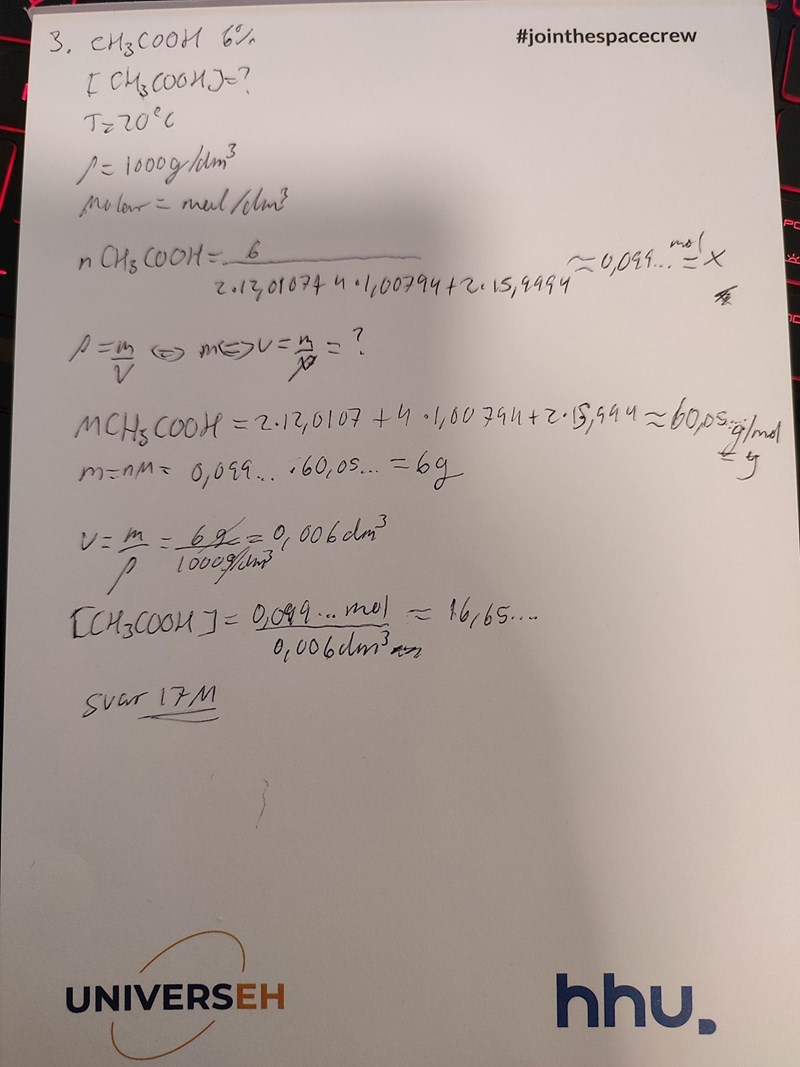 #jointhespacecrew
3. CH3COOH 6%
[CH3COOH]=?
T=20°C
ρ=1000g/dm³
Molar = mol/dm³
nCH3COOH = 6 / 2·12,0107+4·1,00794+2·15,9994 ≈0,099... mol = x
ρ=m/V <=> m<=>V=m/ρ=?
MCH3COOH = 2·12,0107+4·1,00794+2·15,9994≈60,05.. g/mol
= y
m=nM= 0,099... ·60,05... = 6g
V=m/ρ = 6g/1000g/dm³ = 0,006dm³
[CH3COOH]= 0,099... mol / 0,006dm³ ≈ 16,65....
svar 17M
UNIVERSEH
hhu.